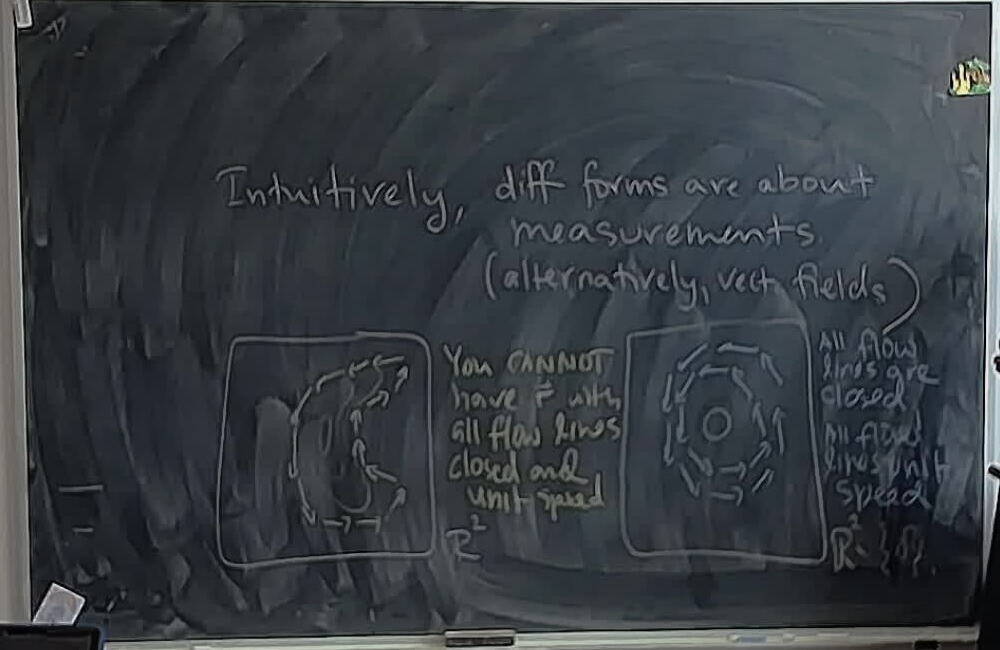 Intuitively, diff forms are about
measurements.
(alternatively, vect. fields)
You CANNOT
have r⃗ with
all flow lines
closed and
unit speed
R²
All flow
lines are
closed
All flow
lines unit
speed
R² \